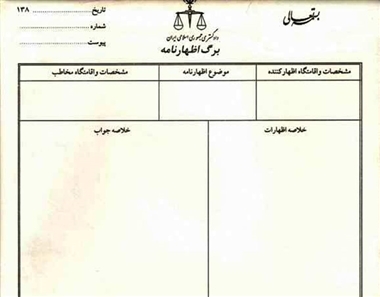 بسمه تعالی
دادگستری جمهوری اسلامی ایران
برگ اظهارنامه
تاریخ ........ ۱۳۸
شماره ........
پیوست ........
مشخصات و اقامتگاه اظهار کننده
موضوع اظهارنامه
مشخصات و اقامتگاه مخاطب
خلاصه اظهارات
خلاصه جواب